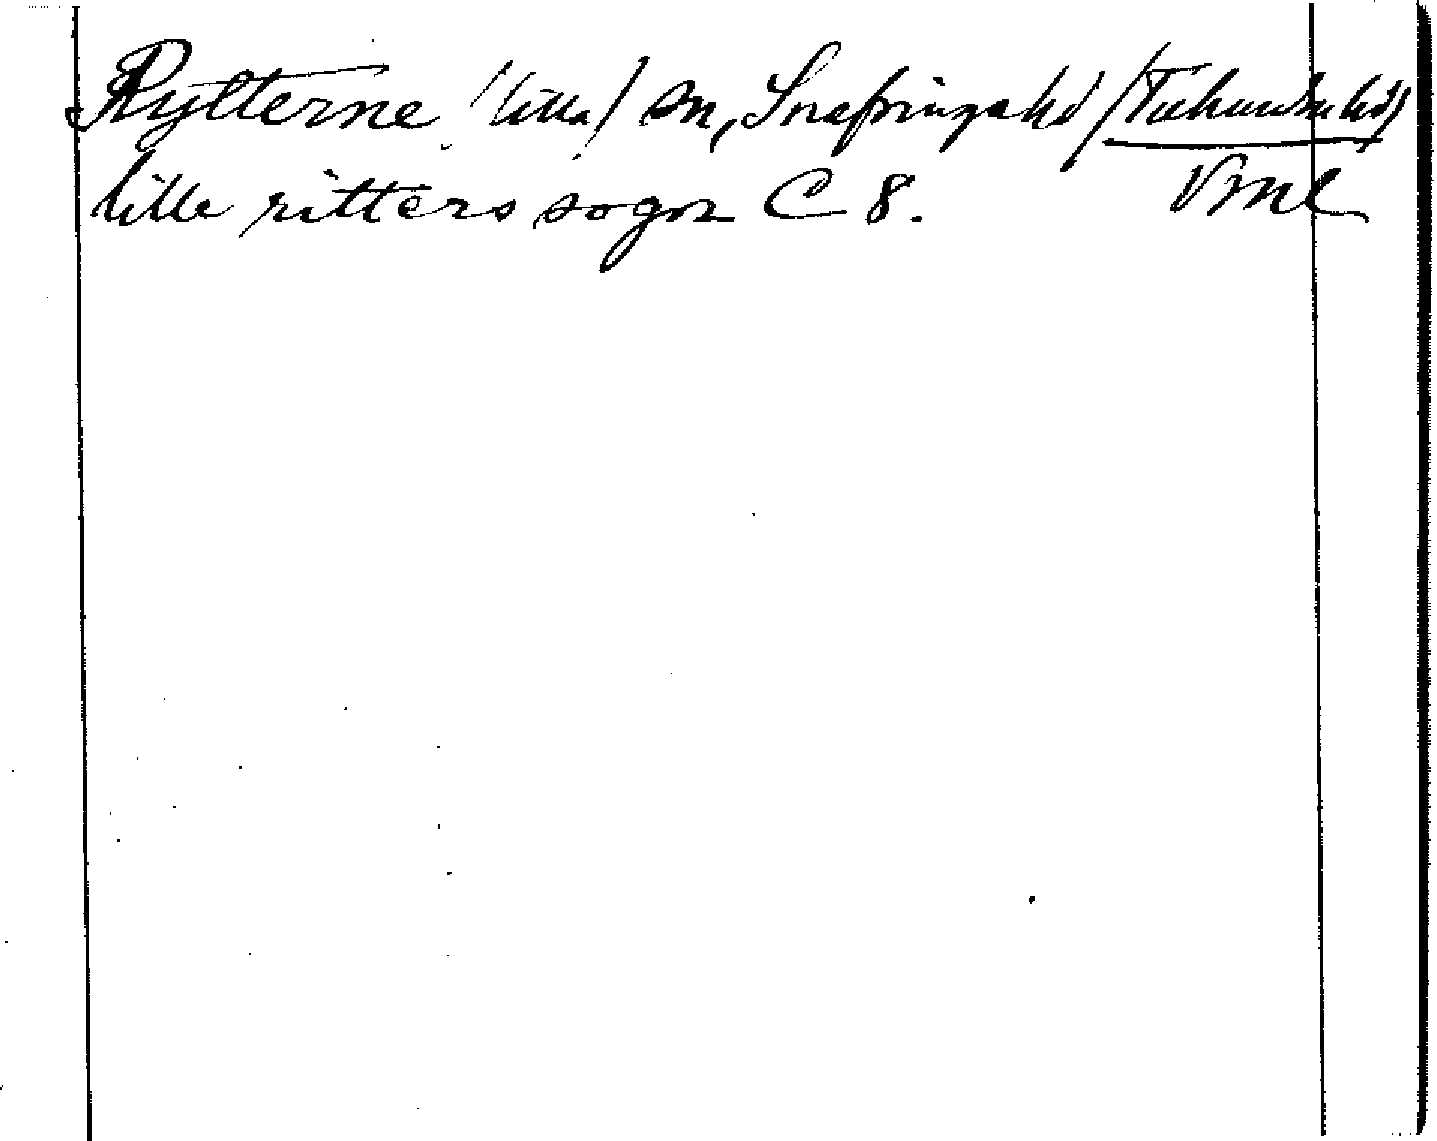 Rytterne (lilla) sn, Snefringa hd (Tuhundra hd)
lille ritters sogn C 8. Vml